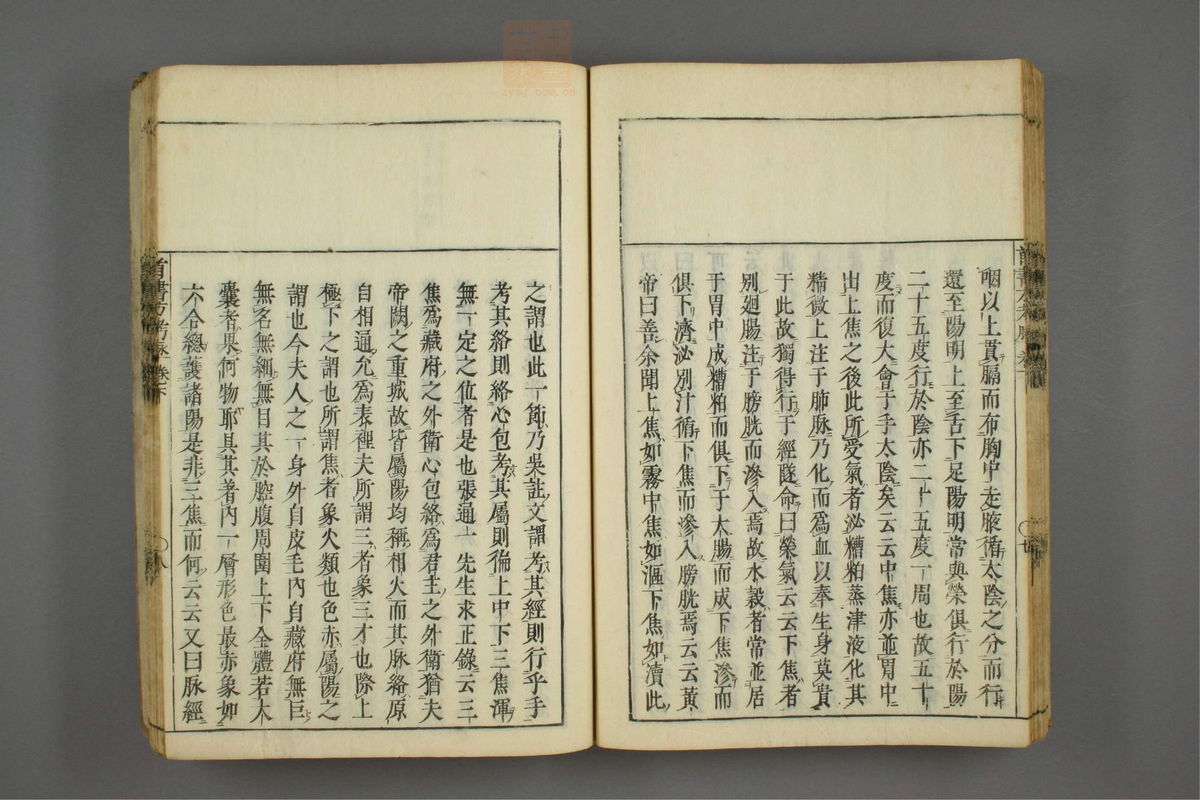 咽以上貫膈而布胸中走腋循太陰之分而行
還至陽明上至舌下足陽明常與榮俱行於陽
二十五度行於陰亦二十五度一周也故五十
度而復大會于手太陰矣云云中焦亦並胃中
出上焦之後此所受氣者泌糟粕蒸津液化其
精微上注于肺脉乃化而爲血以奉生身莫貴
於此故獨得行于經隧命曰榮氣云云下焦者
別廻腸注于膀胱而滲入焉故水穀者常並居
于胃中成糟粕而俱下于大腸而成下焦滲而
俱下濟泌別汁循下焦而滲入膀胱焉云云黃
帝曰善余聞上焦如霧中焦如漚下焦如瀆此
之謂也此一節乃吳註文謂考其經則行乎手
考其絡則絡心包考其屬則徧上中下三焦渾
無一定之位者是也張通一先生求正錄云三
焦爲藏府之外衛心包絡爲君主之外衛猶夫
帝闕之重城故皆屬陽均稱相火而其脉絡原
自相通允爲表裡夫所謂三者象三才也際上
極下之謂也所謂焦者象火類也色赤屬陽之
謂也今夫人之一身外自皮毛內自藏府無巨
無名無細無目其於腔腹周圍上下全體若大
囊者果何物耶其其著內一層形色最赤象如
六合總護諸陽是非三焦而何云云又曰脉經
首書方考脉 卷下
〇八
zysj.com.cn